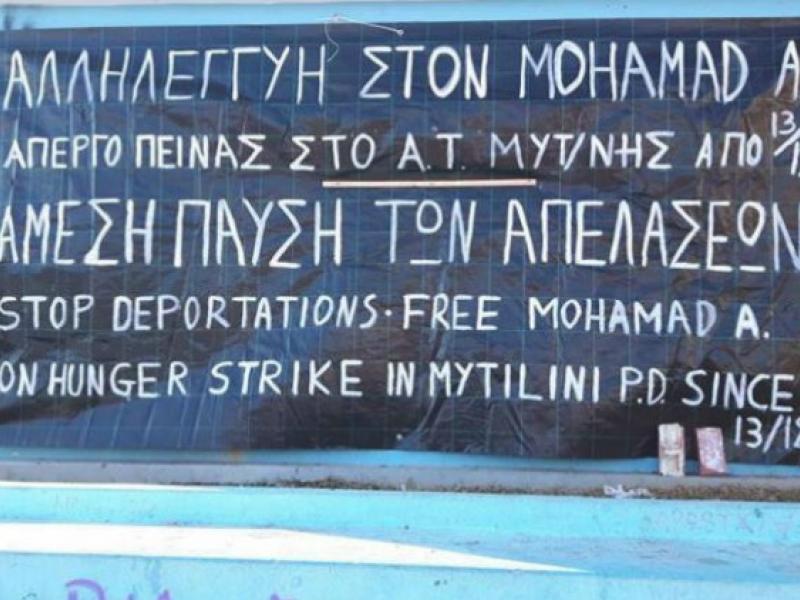 ΑΛΛΗΛΕΓΓΥΗ ΣΤΟΝ MOHAMAD A
ΑΠΕΡΓΟ ΠΕΙΝΑΣ ΣΤΟ Α.Τ. ΜΥΤ/ΝΗΣ ΑΠΟ 13/1
ΑΜΕΣΗ ΠΑΥΣΗ ΤΩΝ ΑΠΕΛΑΣΕΩΝ
STOP DEPORTATIONS · FREE MOHAMAD A.
ON HUNGER STRIKE IN MYTILINI P.D. SINCE
13/12